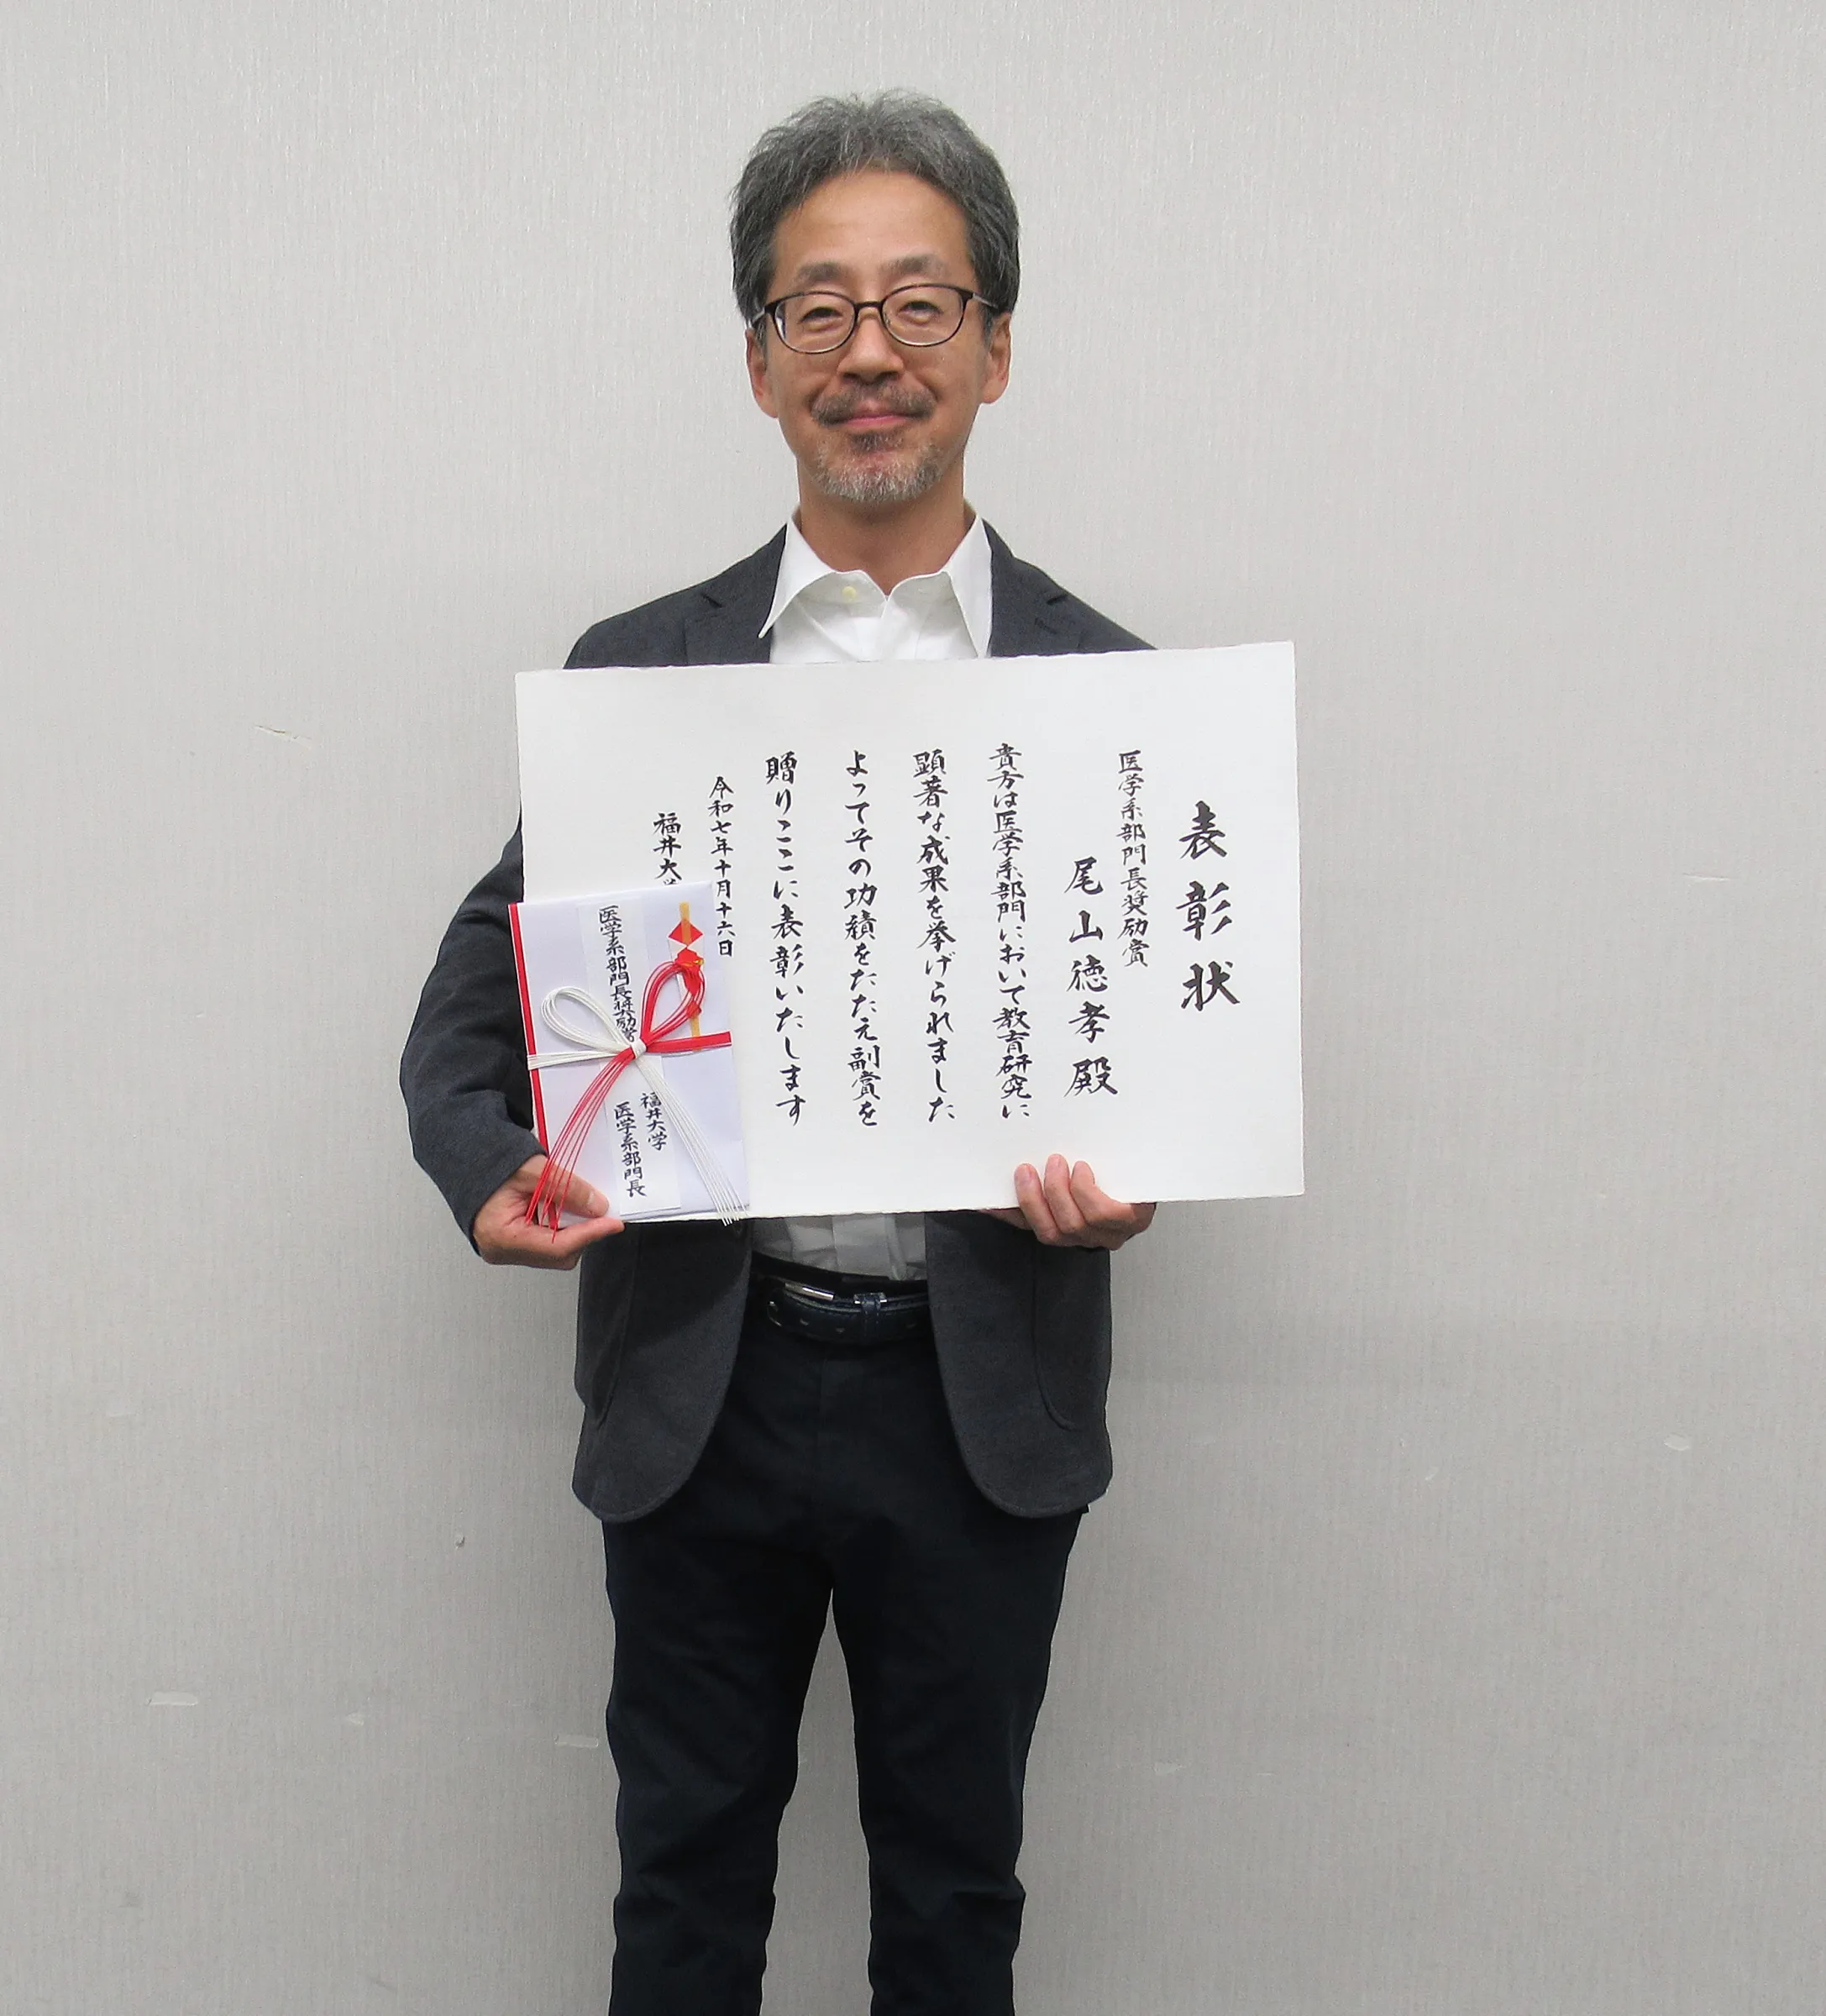 表彰状
医学系部門長奨励賞
尾山徳孝殿
貴方は医学系部門において教育研究に
顕著な成果を挙げられました
よってその功績をたたえ副賞を
贈りここに表彰いたします
令和七年十月十六日
福井大学
医学系部門長奨励賞
福井大学
医学系部門長